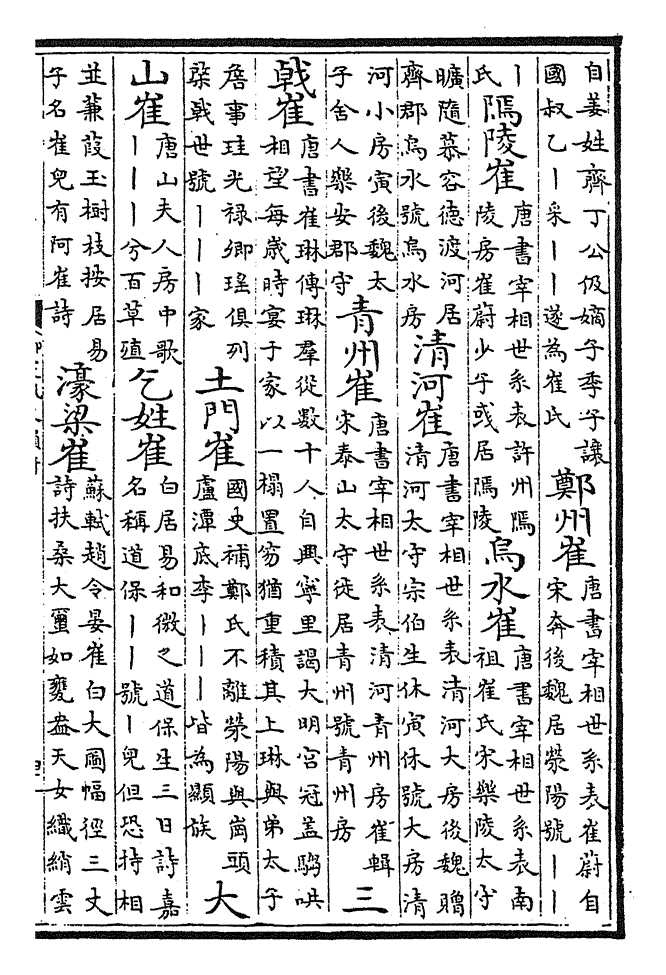 自姜姓齊丁公伋嫡子季子讓國叔乙丨采丨丨遂為崔氏鄭州崔唐書宰相世系表崔蔚自宋奔後魏居滎陽號丨丨
丨氏鄢陵崔唐書宰相世系表許州鄢陵房崔蔚少子彧居鄢陵烏水崔唐書宰相世系表南祖崔氏宋樂陵太守
曠隨慕容德渡河居齊郡烏水號烏水房清河崔唐書宰相世系表清河大房後魏贈清河太守宗伯生休寅休號大房清
河小房寅後魏太子舍人樂安郡守青州崔唐書宰相世系表清河青州房崔輯宋泰山太守徙居青州號青州房三
戟崔唐書崔琳傳琳羣從數十人自興寧里謁大明宮冠蓋騶哄相望每歲時宴于家以一榻置笏猶重積其上琳與弟太子
詹事珪光祿卿瑤俱列棨戟世號丨丨丨家土門崔國史補鄭氏不離滎陽與崗頭盧潭底李丨丨丨皆為顯族大
山崔唐山夫人房中歌丨丨丨兮百草殖乞姓崔白居易和微之道保生三日詩嘉名稱道保丨丨號丨兒但恐持相
並蒹葭玉樹枝按居易子名崔兒有阿崔詩濠梁崔蘇軾趙令晏崔白大圖幅徑三丈詩扶桑大蠒如甕盎天女織綃雲